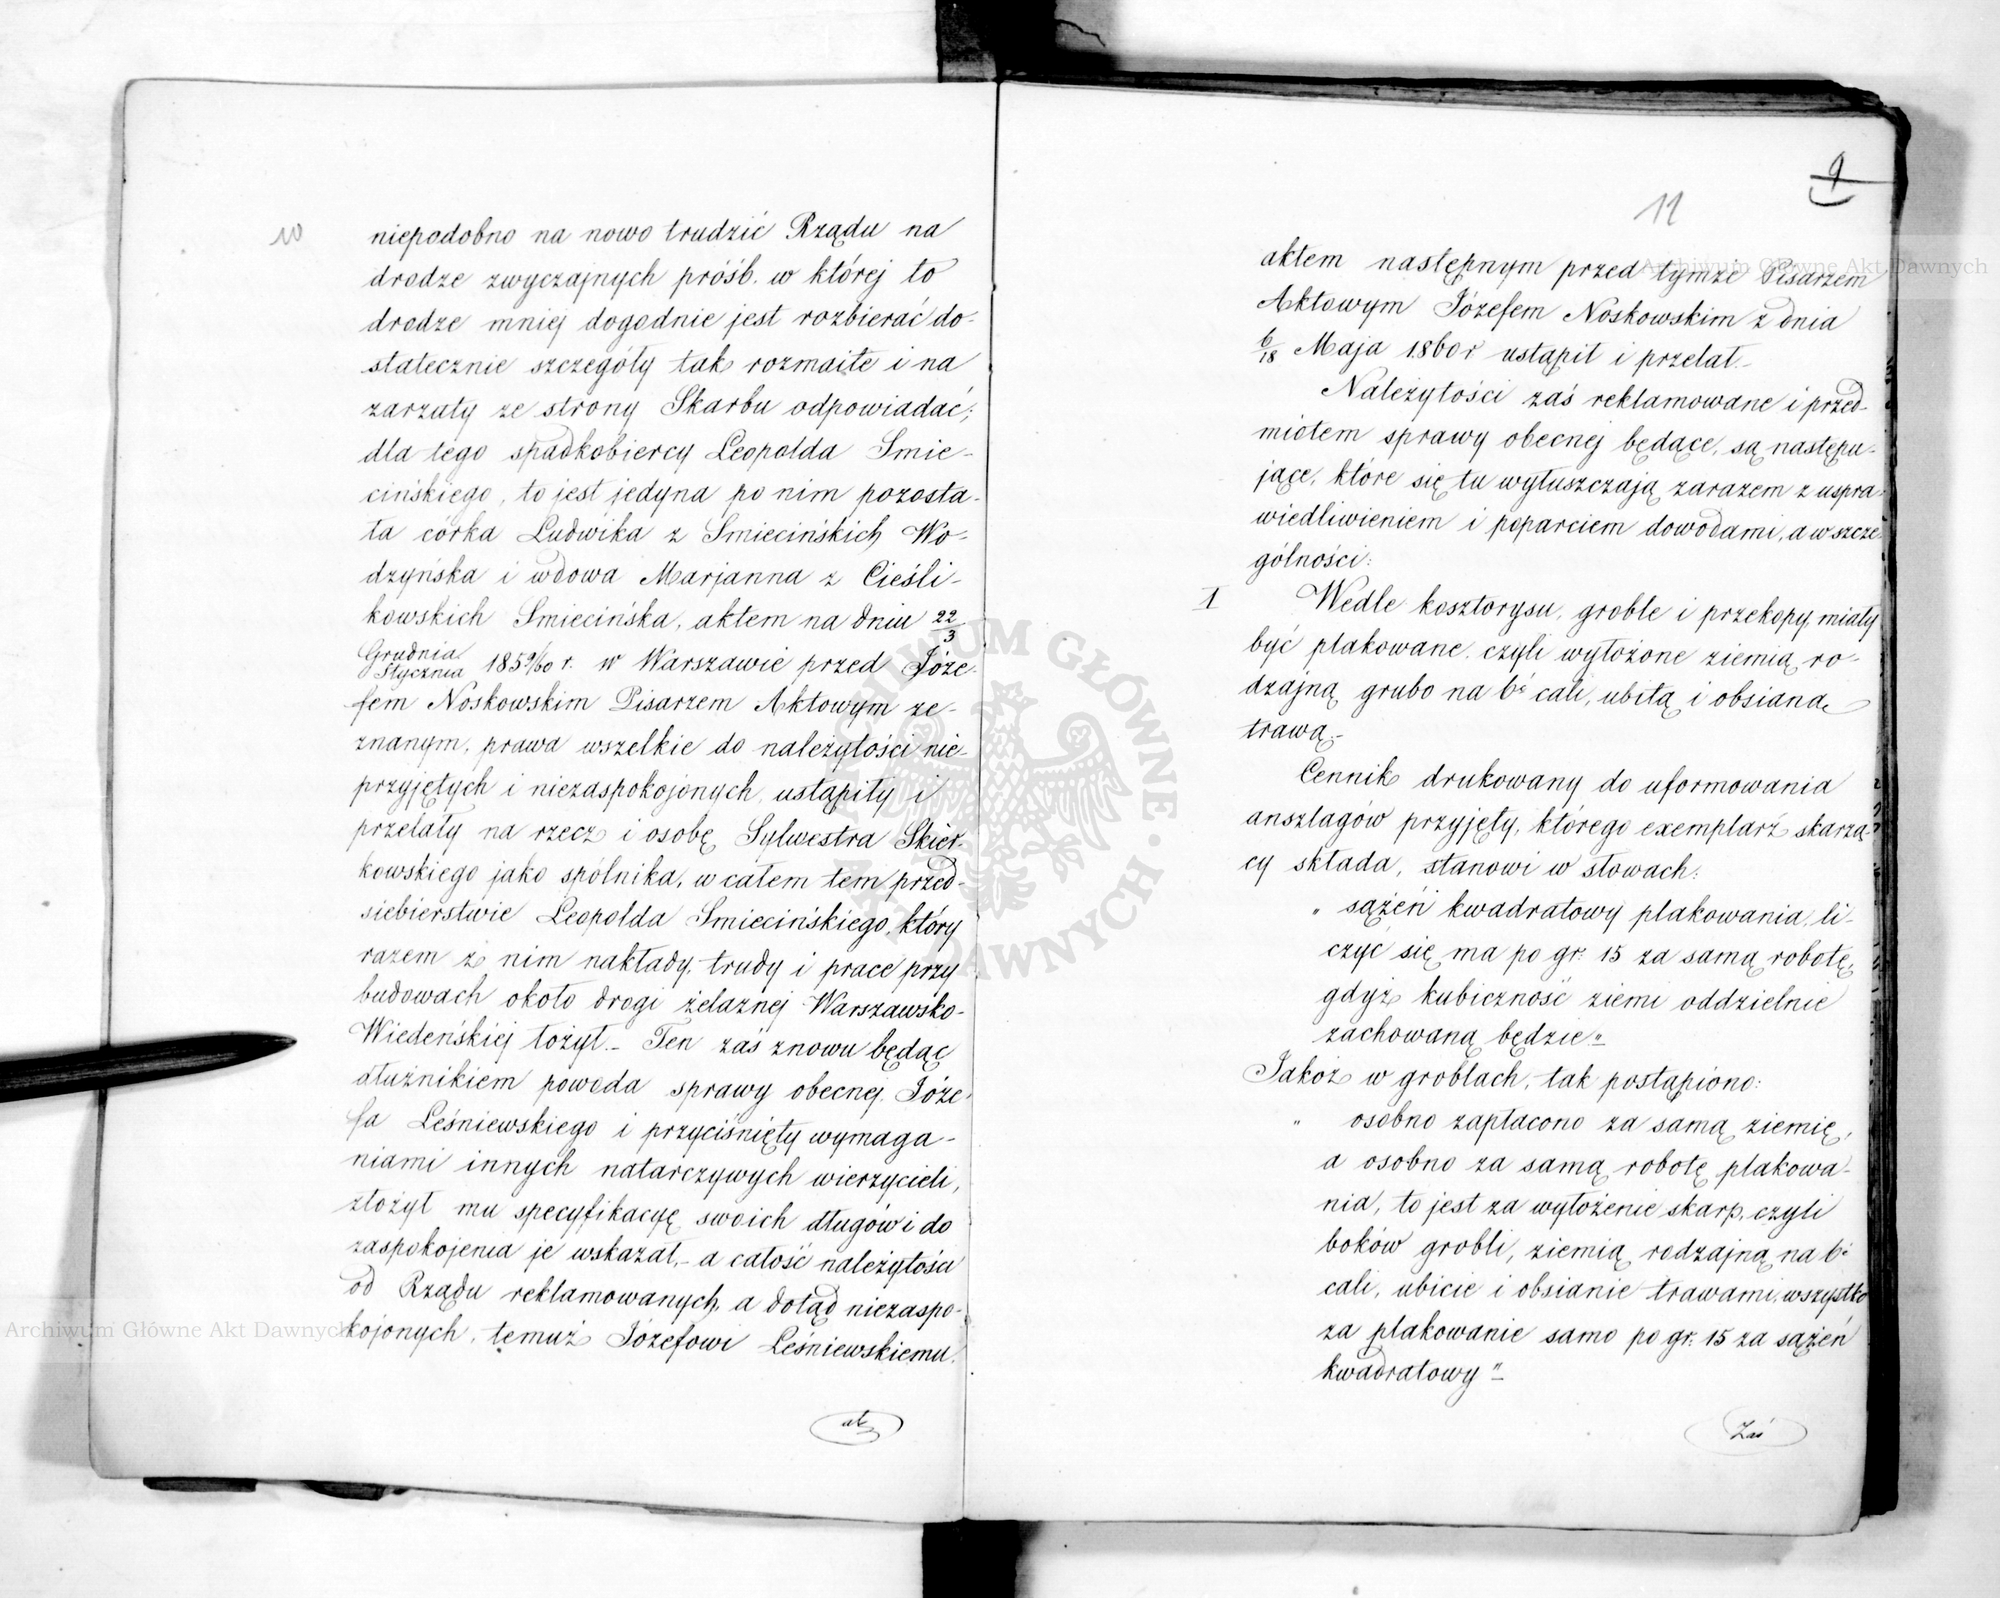 10
niepodobno na nowo trudzić Rządu na
drodze zwyczajnych próśb. w której to
drodze mniej dogodnie jest rozbierać do-
statecznie szczegóły tak rozmaite i na
zarzaty ze strony Skarbu odpowiadać;
dla tego spadkobiercy Leopolda Smie-
cińskiego, to jest jedyna po nim pozosta-
ła córka Ludwika z Smiecińskich Wo-
dzyńska i wdowa Marjanna z Cieśli-
kowskich Smiecińska, aktem na dniu 22/3
Grudnia/Stycznia 1859/60 r. w Warszawie przed Józe-
fem Noskowskim Pisarzem Aktowym ze-
znanym, prawa wszelkie do należytości nie-
przyjętych i niezaspokojonych, ustąpiły i
przelały na rzecz i osobę Sylwestra Skier-
kowskiego jako spólnika, w całem tem przed-
siebierstwie Leopolda Smiecińskiego, który
razem z nim nakłady, trudy i prace przy
budowach około drogi żelaznej Warszawsko-
Wiedeńskiej łożył.- Ten zaś znowu będąc
dłużnikiem powoda sprawy obecnej Józe-
fa Leśniewskiego i przyciśnięty wymaga-
niami innych natarczywych wierzycieli,
złożył mu specyfikacyę swoich długów i do
zaspokojenia je wskazał,- a całość należytości
od Rządu reklamowanych, a dotąd niezaspo-
kojonych, temuż Józefowi Leśniewskiemu.
akt
9
11
aktem następnym przed tymże Pisarzem
Aktowym Józefem Noskowskim z dnia
6/18 Maja 1860 r ustąpił i przelał.-
Należytości zaś reklamowane i przed-
miotem sprawy obecnej będące, są następu-
jące, które się tu wyłuszczają zarazem z uspra-
wiedliwieniem i poparciem dowodami, a w szcze-
gólności:
1 Wedle kosztorysu, groble i przekopy, miały
być plakowane, czyli wyłożone ziemią ro-
dzajną grubo na 6ć cali, ubitą i obsianą
trawą.-
Cennik drukowany do uformowania
anszlagów przyjęty, którego exemplarz skarżą-
cy składa, stanowi w słowach:
„ sążeń kwadratowy plakowania, li-
czyć się ma po gr. 15 za samą robotę,
gdyż kubiczność ziemi oddzielnie
zachowaną będzie"
Jakoż w groblach, tak postąpiono:
„ osobno zapłacono za samą ziemię,
a osobno za samą robotę plakowa-
nia, to jest za wyłożenie skarp, czyli
boków grobli, ziemią rodzajną na 6ć
cali, ubicie i obsianie trawami, wszystko
za plakowanie samo po gr. 15 za sążeń
kwadratowy"
Zaś
Archiwum Główne Akt Dawnych
Archiwum Główne Akt Dawnych
ARCHIWUM GŁÓWNE AKT DAWNYCH